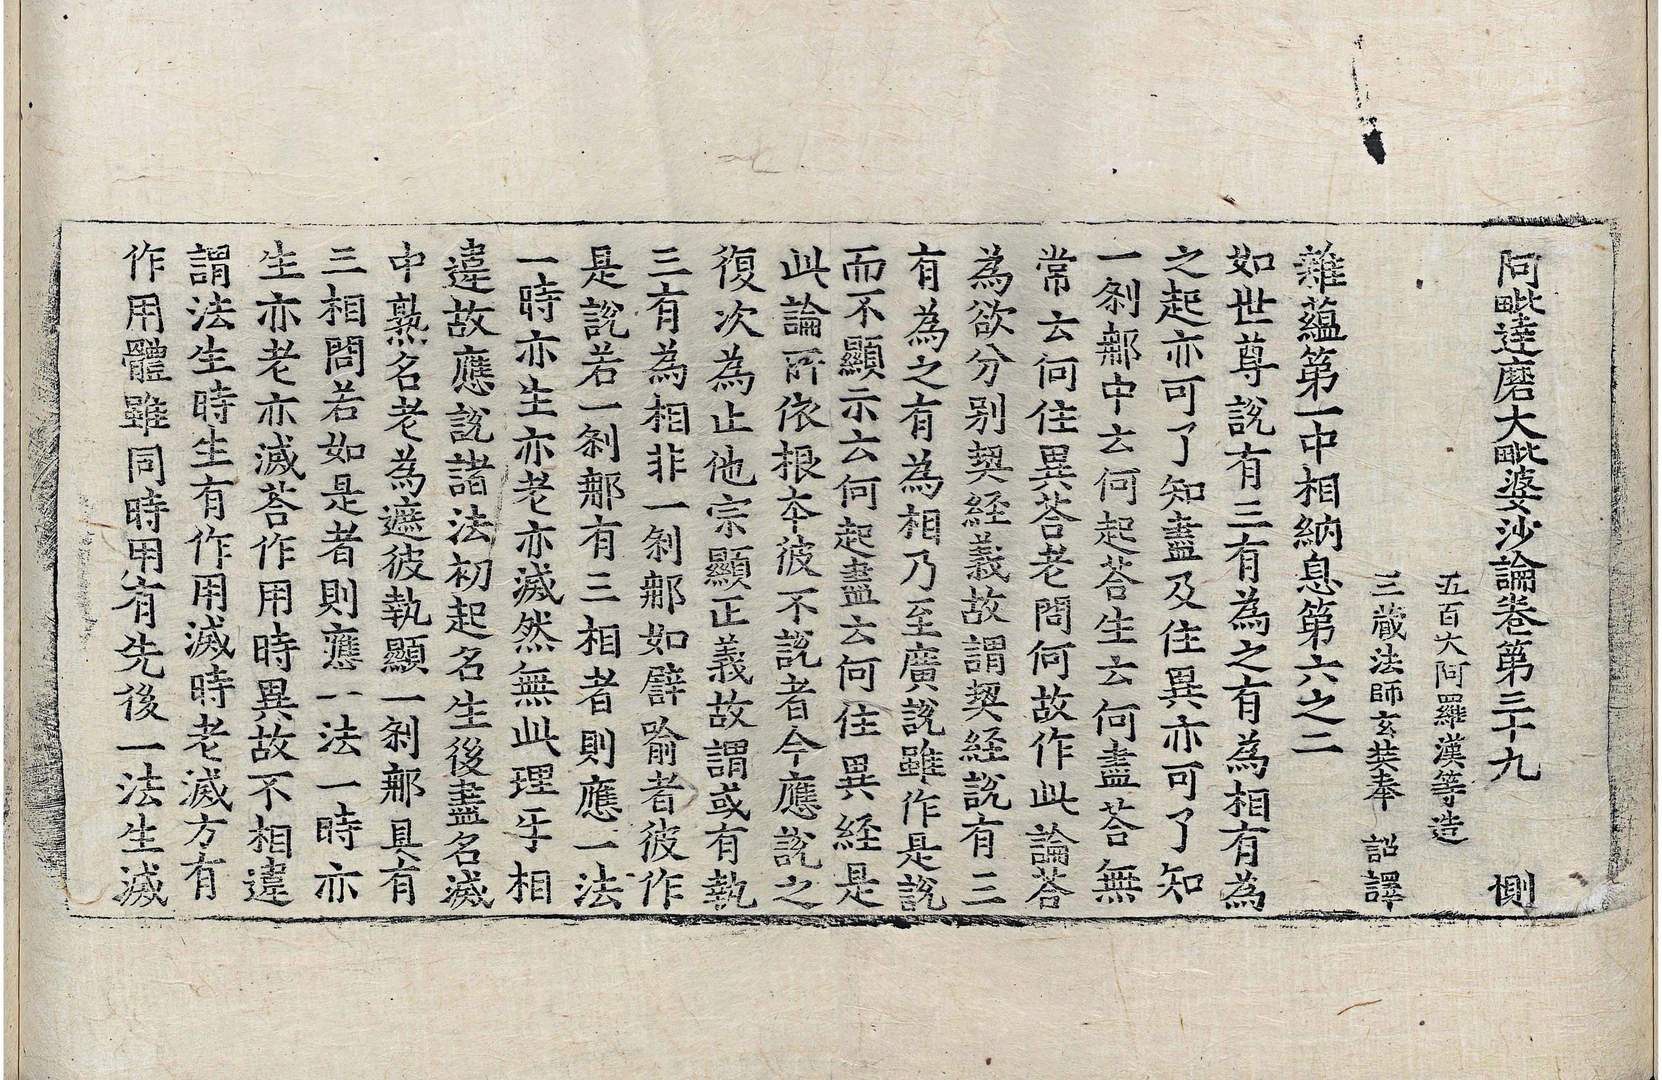 阿毗達磨大毗婆沙論卷第三十九　惻
五百大阿羅漢等造
三藏法師玄奘奉　詔譯
雜蘊第一中相納息第六之二
如世尊說有三有為之有為相有為
之起亦可了知盡及住異亦可了知
一剎那中云何起荅生云何盡荅無
常云何住異荅老問何故作此論荅
為欲分別契經義故謂契經說有三
有為之有為相乃至廣說雖作是說
而不顯示云何起盡云何住異經是
此論所依根本彼不說者今應說之
復次為止他宗顯正義故謂或有執
三有為相非一剎那如譬喻者彼作
是說若一剎那有三相者則應一法
一時亦生亦老亦滅然無此理乎相
違故應說諸法初起名生後盡名滅
中熟名老為遮彼執顯一剎那具有
三相問若如是者則應一法一時亦
生亦老亦滅荅作用時異故不相違
謂法生時生有作用滅時老滅方有
作用體雖同時用有先後一法生滅